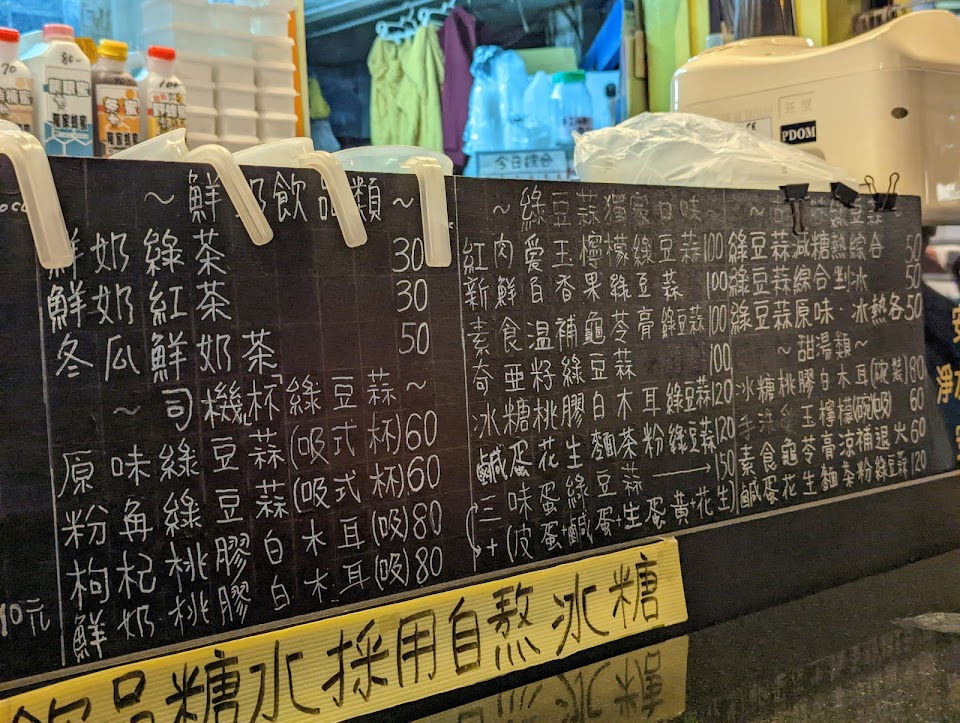 70
80
100
今日綜合
PDOM
～鮮奶飲品類～
鮮奶綠茶 30
鮮奶紅茶 30
冬瓜鮮奶茶 50
～司機杯綠豆蒜～
原味綠豆蒜(吸式杯)60
粉角綠豆蒜(吸式杯)60
枸杞桃膠白木耳(吸)80
鮮奶桃膠白木耳(吸)80
10元
～綠豆蒜獨家口味～
紅肉愛玉檸檬綠豆蒜100
新鮮百香果綠豆蒜 100
素食溫補龜苓膏綠豆蒜100
奇亞籽綠豆蒜 100
冰糖桃膠白木耳綠豆蒜120
鹹蛋花生麵茶粉綠豆蒜120
三味蛋綠豆蒜→150
+(皮蛋+鹹蛋+生蛋黃+花生)
綠豆蒜減糖熱綜合 50
綠豆蒜綜合剉冰 50
綠豆蒜原味:冰熱各50
～甜湯類～
冰糖桃膠白木耳(碗裝)80
手洗愛玉檸檬(碗)(吸) 60
素食龜苓膏涼補退火60
鹹蛋花生麵茶粉綠豆蒜120
飲品糖水採用自熬冰糖